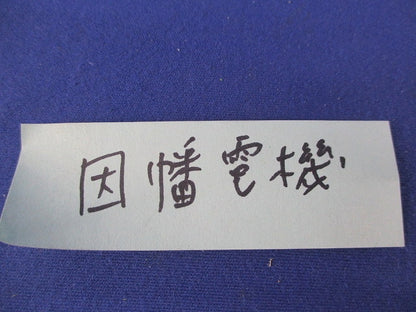 因幡電機